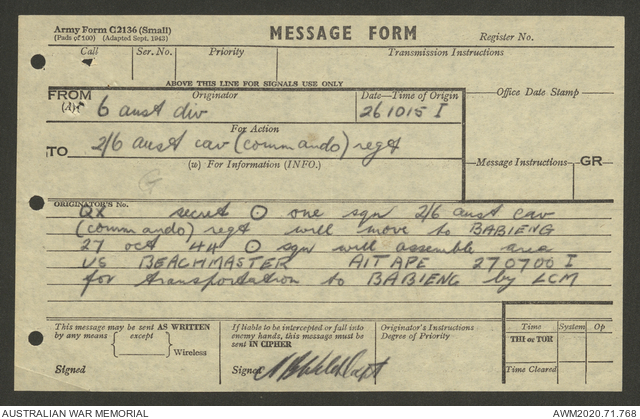 Army Form C2136 (Small)
(Pads of 100) (Adapted Sept. 1943)
MESSAGE FORM
Register No.
Call Ser. No. Priority Transmission Instructions
ABOVE THIS LINE FOR SIGNALS USE ONLY
FROM (A) Originator Date—Time of Origin Office Date Stamp
6 aust div 261015 I
For Action
TO 2/6 aust cav (commando) regt
(w) For Information (INFO.) Message Instructions GR
ORIGINATOR'S No.
QX secret ⊙ one sqn 2/6 aust cav
(commando) regt will move to BABIENG
27 oct 44 ⊙ sqn will assemble area
US BEACHMASTER AITAPE 270700 I
for transportation to BABIENG by LCM
This message may be sent AS WRITTEN
by any means except
Wireless
Signed
If liable to be intercepted or fall into
enemy hands, this message must be
sent IN CIPHER
Signed Capt
Originator's Instructions
Degree of Priority
Time System Op
THI or TOR
Time Cleared
AUSTRALIAN WAR MEMORIAL AWM2020.71.768